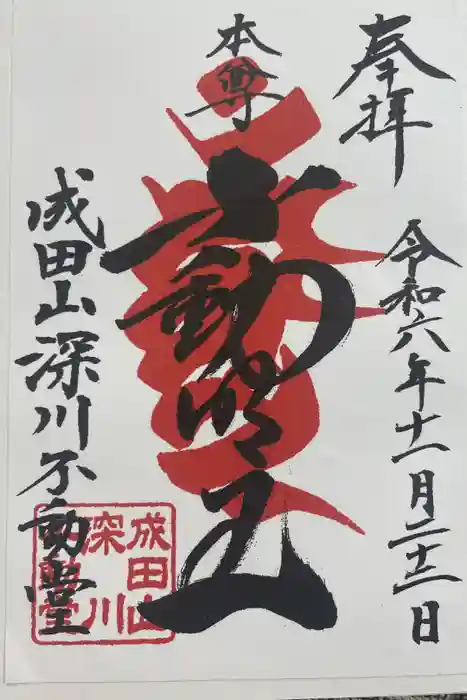 奉拝
令和六年十一月二十二日
本尊
不動明王
成田山深川不動堂
成田山
深川